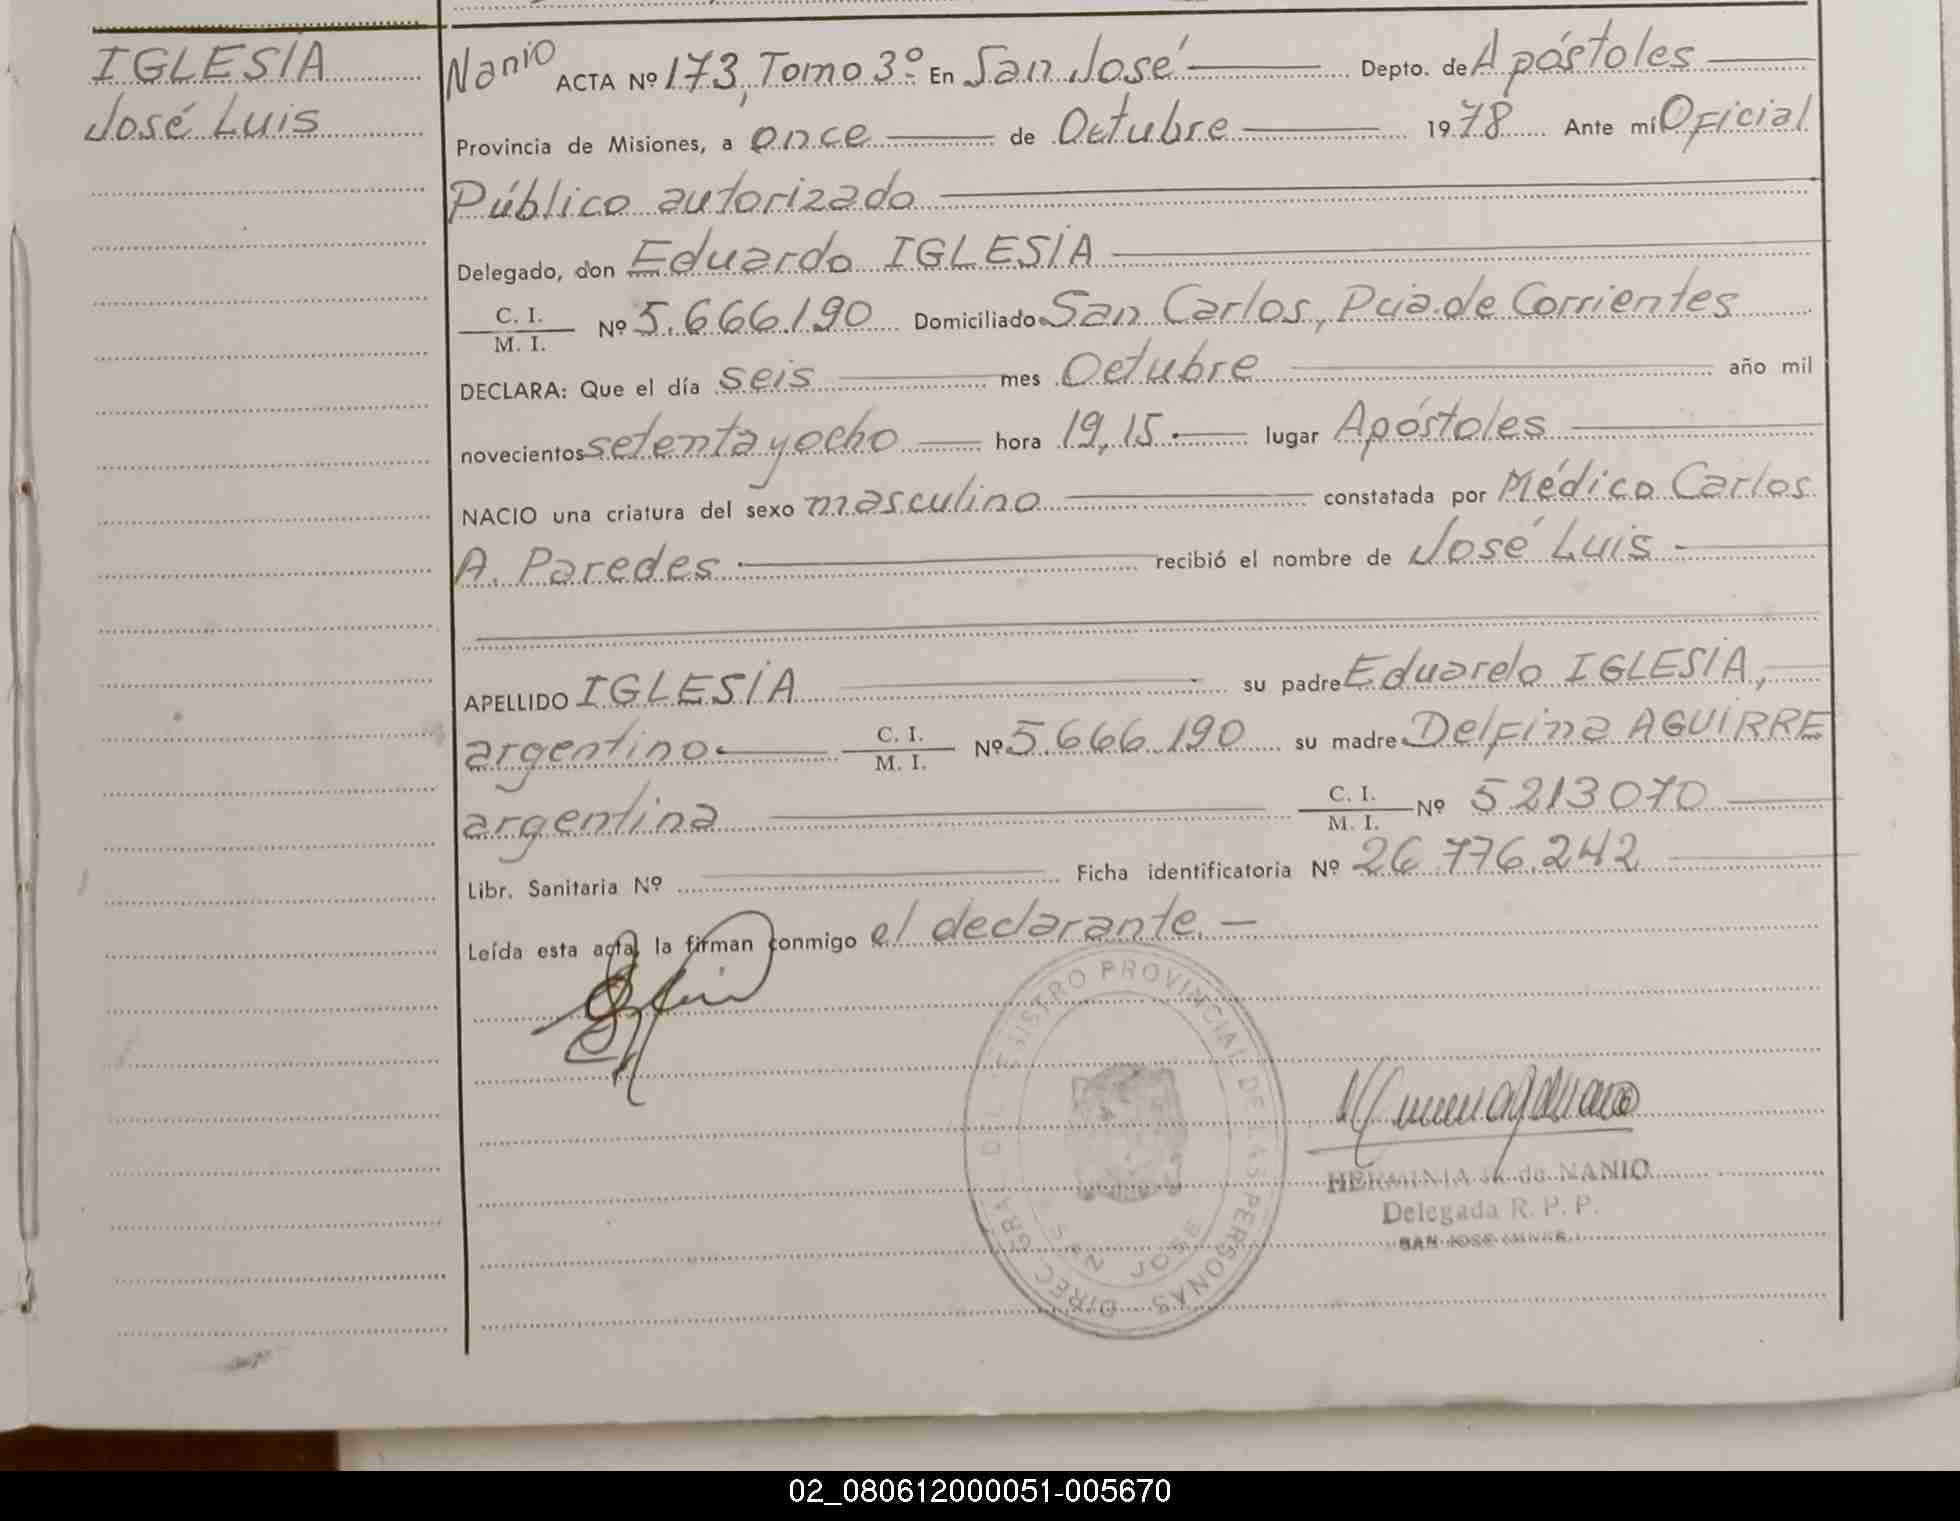 IGLESIA
José Luis
Nanio ACTA Nº 173, Tomo 3º En San José Depto. de Apóstoles
Provincia de Misiones, a once de Octubre 1978 Ante mí Oficial
Público autorizado
Delegado, don Eduardo IGLESIA
C. I.
M. I. Nº 5.666.190 Domiciliado San Carlos, Pcia. de Corrientes
DECLARA: Que el día seis mes Octubre año mil
novecientos setenta y ocho hora 19,15 lugar Apóstoles
NACIO una criatura del sexo masculino constatada por Médico Carlos
A. Paredes recibió el nombre de José Luis
APELLIDO IGLESIA su padre Eduardo IGLESIA,
argentino C. I.
M. I. Nº 5.666.190 su madre Delfina AGUIRRE
argentina C. I.
M. I. Nº 5213070
Libr. Sanitaria Nº Ficha identificatoria Nº 26.776.242
Leída esta acta, la firman conmigo el declarante.—
DIREC. GRAL. DEL REGISTRO PROVINCIAL DE LAS PERSONAS
SAN JOSE
HERMINIA de NANIO
Delegada R. P. P.
SAN JOSE
02_080612000051-005670